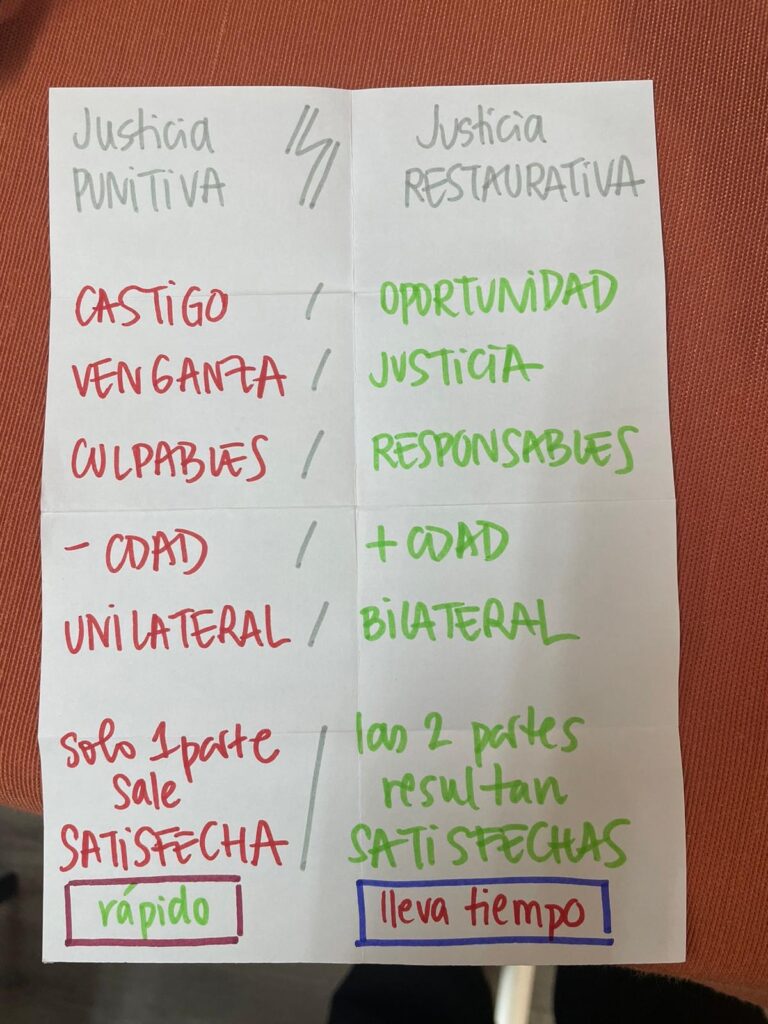 Justicia PUNITIVA
Justicia RESTAURATIVA
CASTIGO / OPORTUNIDAD
VENGANZA / JUSTICIA
CULPABLES / RESPONSABLES
- CDAD / + CDAD
UNILATERAL / BILATERAL
solo 1 parte
sale
SATISFECHA
/
las 2 partes
resultan
SATISFECHAS
rápido
lleva tiempo